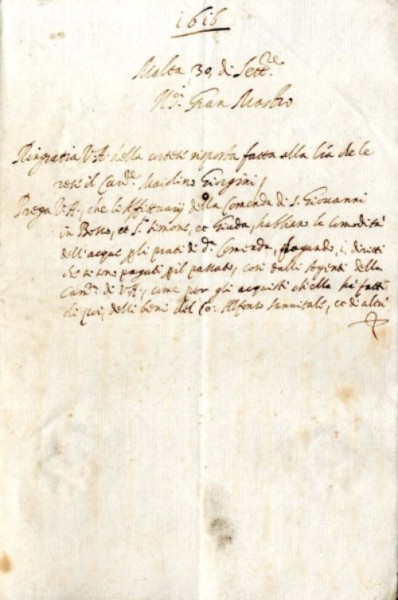 1616
Malta 30 di Sett.re
Il S.r Gran Mastro
Ringratia V.A. della cortese risposta fatta alla l'ra che le
rese il Cav.re Giorgini
Prega V.A., che li Affittuarij della Comenda di S. Giovanni
in Bosco, et S. Simone, et Giuda, habbiano la comodità
dell'acque p gli prati di d.a Comenda, pagando, i, diritti
che si son pagati p il passato, così dalli Agenti della
Cam.ra di V.A., come per gli acquisti ch'ella ha fatti
di qui, delli beni del Co: Alfonso Sanvitale, et di altri